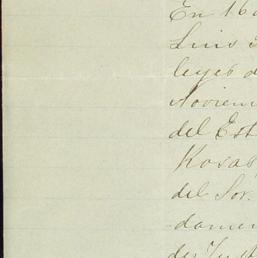 En 16
Luis
leyes d
Noviem
del Est
Rosa
del Sor.
damen
de Just